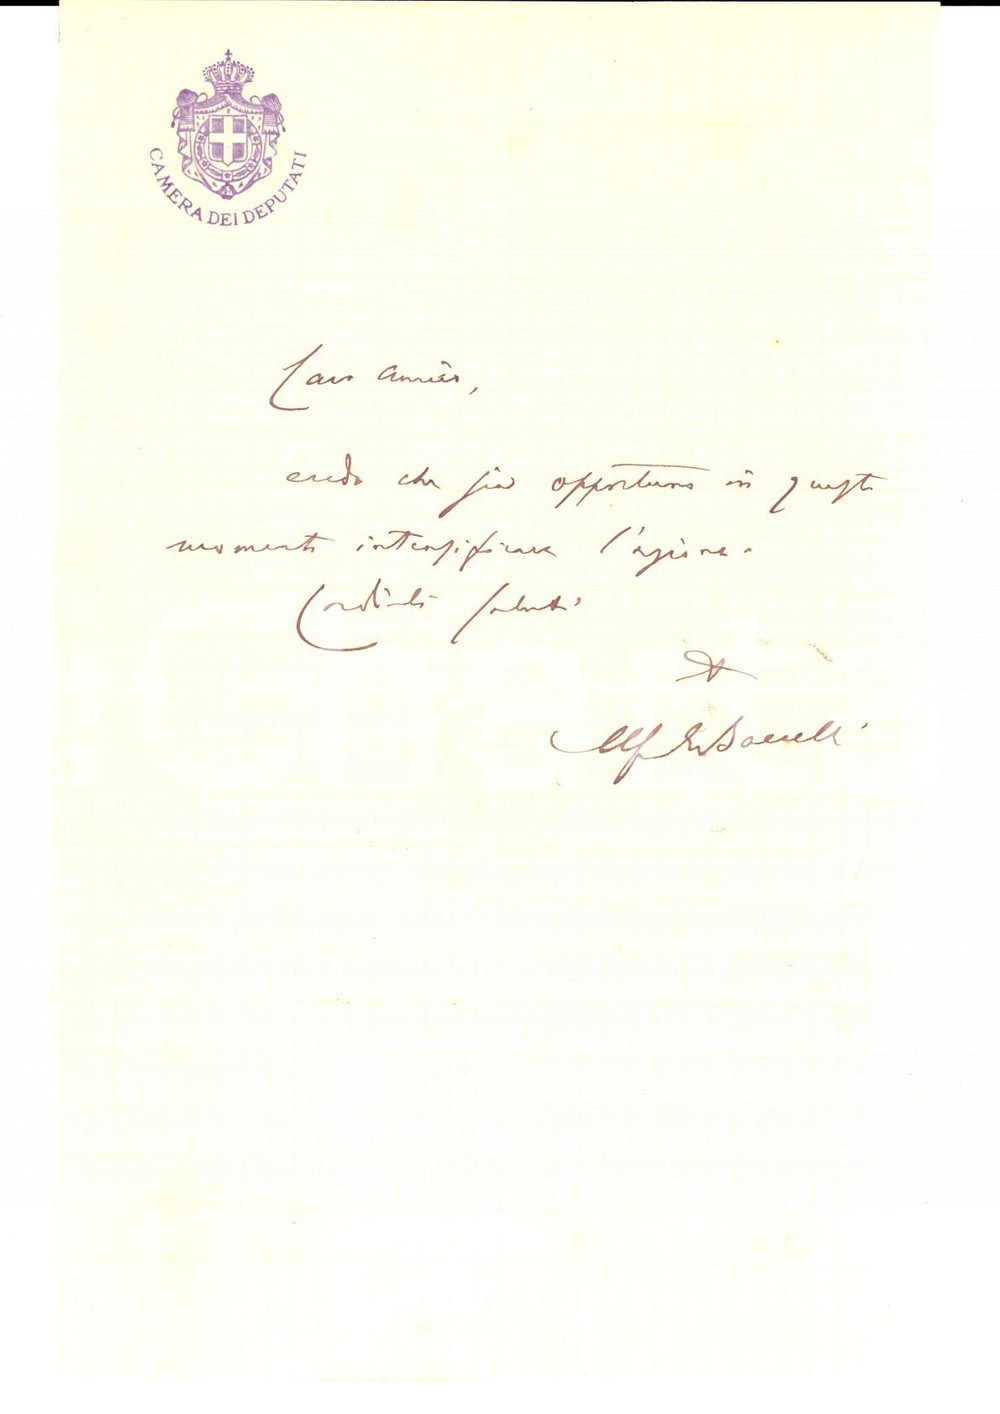 CAMERA DEI DEPUTATI
Caro amico,
credo che sia opportuno in questo
momento intensificare l'azione.
Cordiali saluti
Alfredo Baccelli